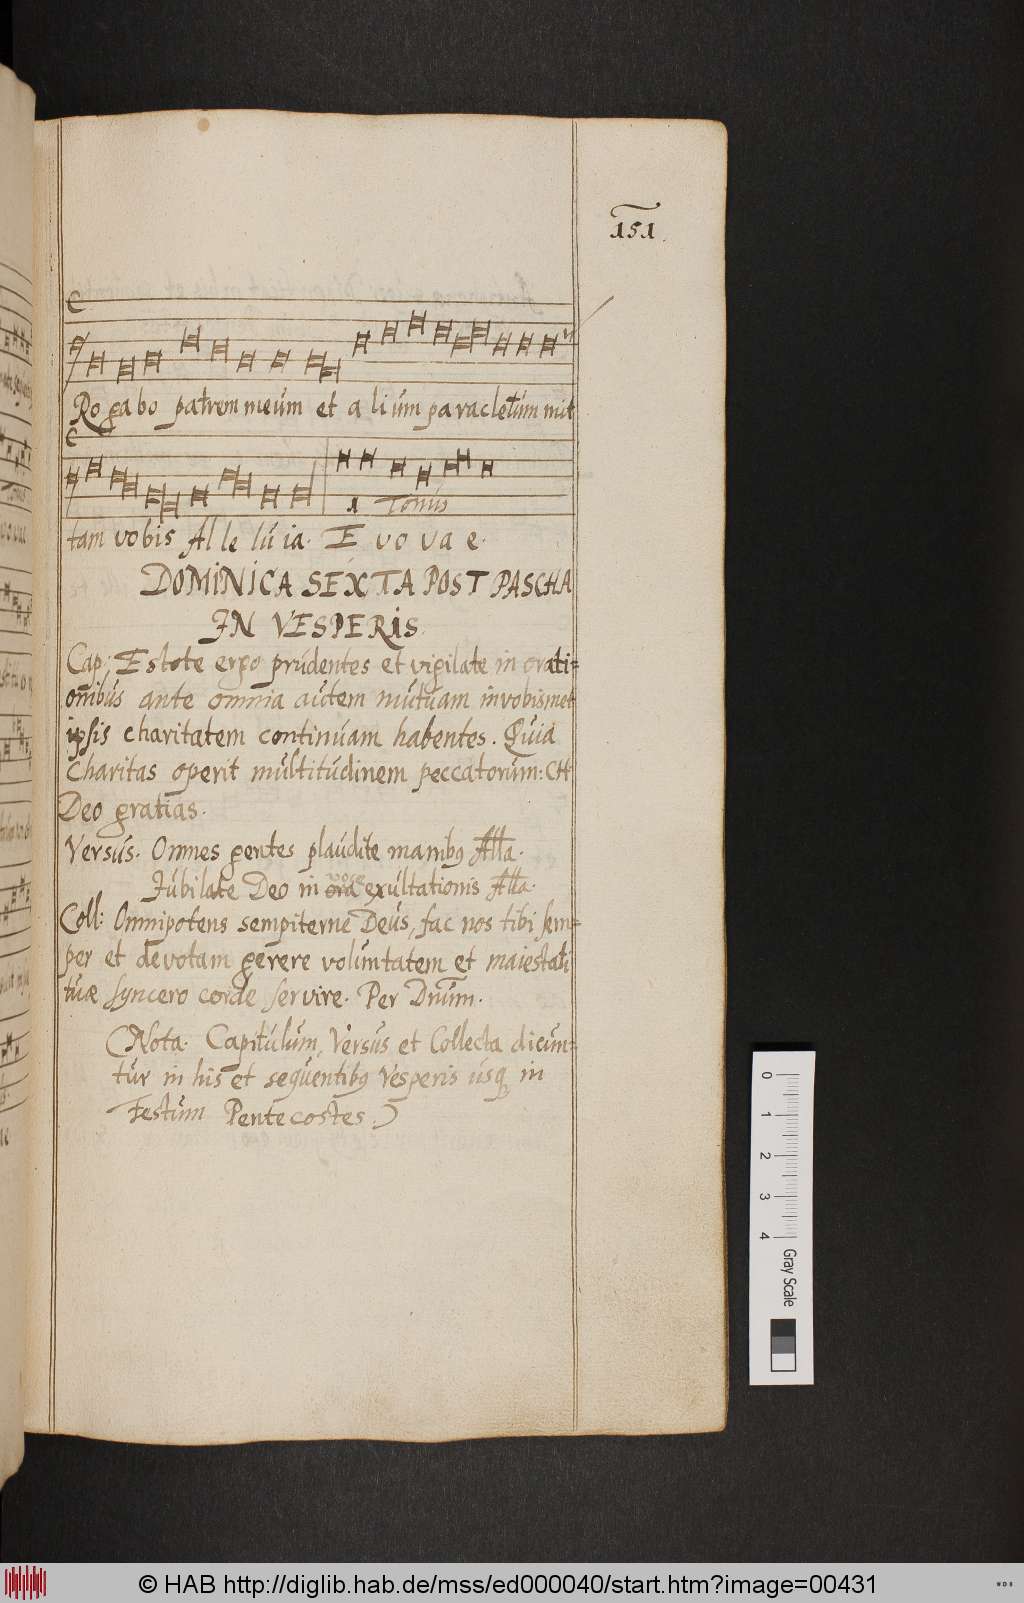 151
Ro ga bo patrem meum et a li um pa ra cle tum mit
1 Tonus
tam vobis Al le lu ia. E vo va e.
DOMINICA SEXTA POST PASCHA
IN VESPERIS.
Cap: Estote ergo prudentes et vigilate in orati=
onibus ante omnia autem mutuam in vobismet
ipsis charitatem continuam habentes. Quia
Charitas operit multitudinem peccatorum: CH
Deo gratias.
Versus. Omnes gentes plaudite manibꝫ Alla.
Jubilate Deo in voce exultationis Alla.
Coll: Omnipotens sempiterne Deus, fac nos tibi sem=
per et devotam gerere voluntatem et maiestati
tuæ syncero corde servire. Per Dnum.
(Nota. Capitulum, Versus et Collecta dicun=
tur in his et sequentibꝫ Vesperis usqꝫ in
Festum Pentecostes.)
0 1 2 3 4 Gray Scale
© HAB http://diglib.hab.de/mss/ed000040/start.htm?image=00431